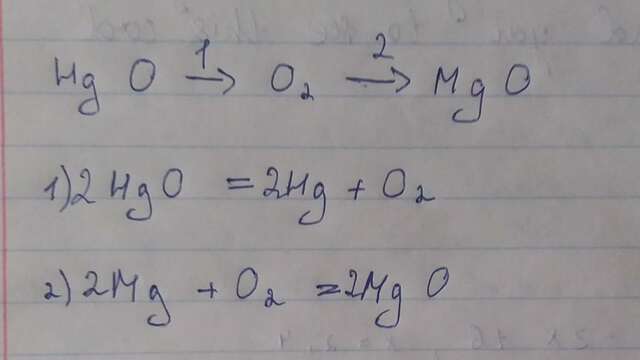 HgO →1 O₂ →2 MgO
1) 2HgO = 2Hg + O₂
2) 2Mg + O₂ = 2MgO